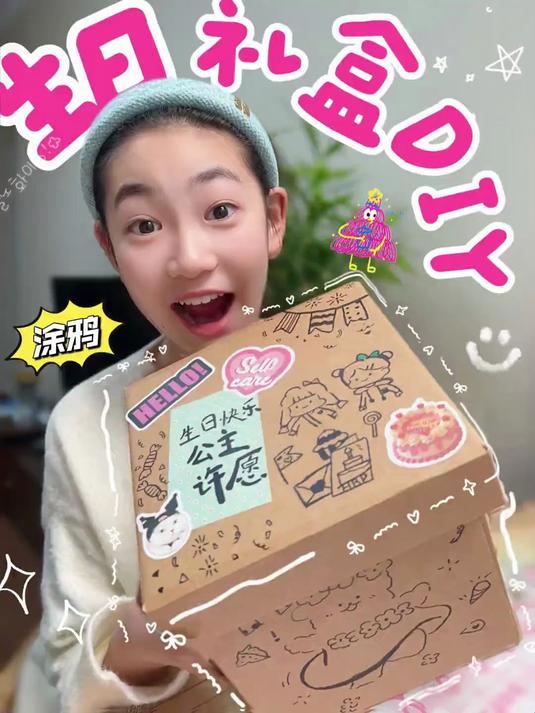 生日礼盒DIY
涂鸦
HELLO!
Self
care
生日快乐
公主
许愿